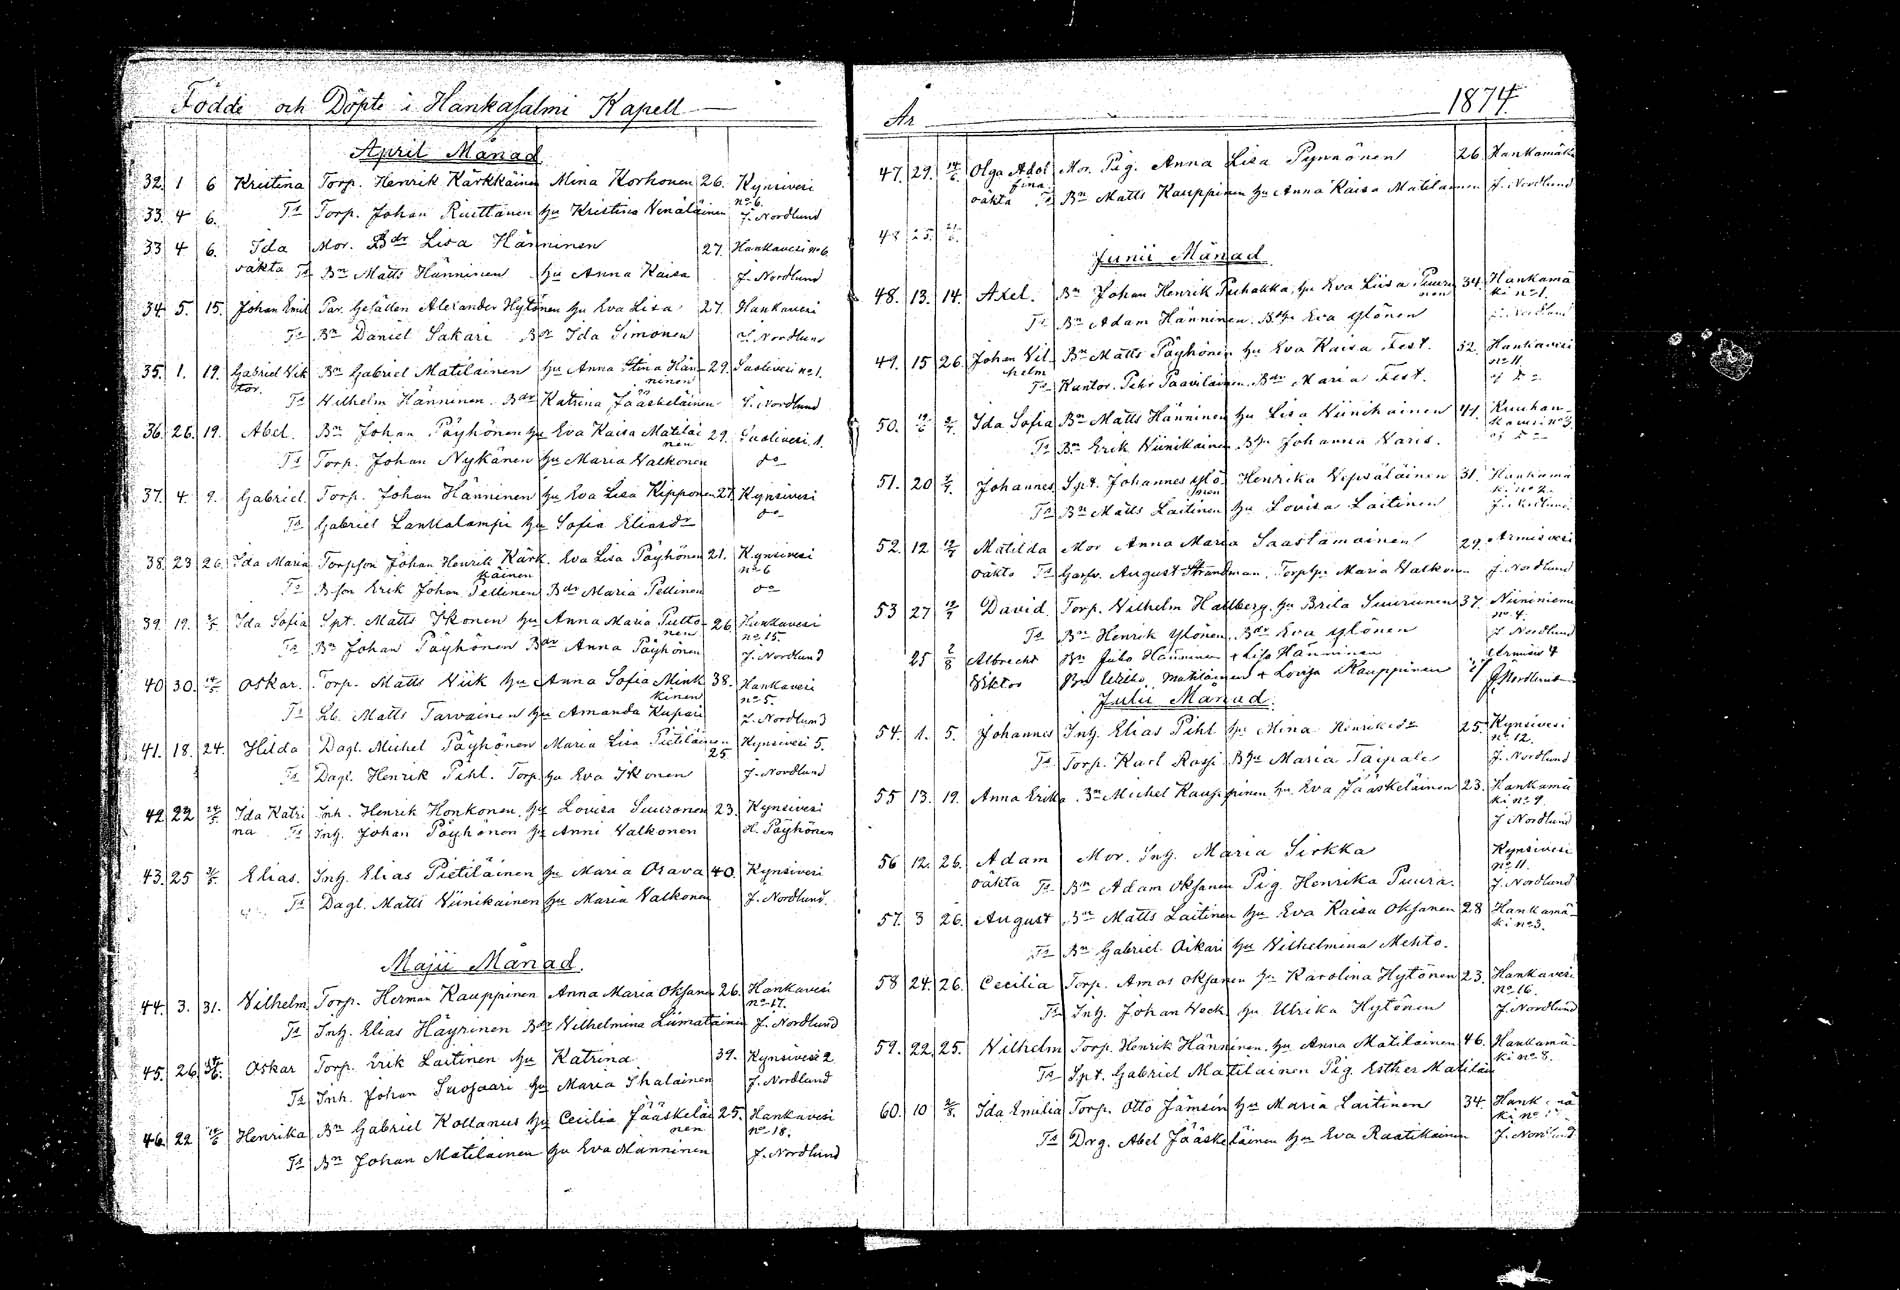 Födde och Döpte i Hankasalmi Kapell
April Månad
32. 1 6 Kristina Torp. Henrik Kärkkäinen Mina Korhonen 26. Kynsivesi
no 6.
33. 4 6. Ts Torp. Johan Ruittanen hu Kristina Venäläinen J. Nordlund
33 4 6. Ida Mor. Bdr Lisa Hänninen 27. Hankavesi no 6
oäkta Ts Bn Matts Hänninen hu Anna Kaisa J. Nordlund
34. 5. 15. Johan Emil Par. Gesällen Alexander Hytönen hu Eva Lisa 27. Hankavesi
Ts Bn Daniel Sakari Bdr Ida Simonen J. Nordlund
35. 1. 19. Gabriel Vik Bn Gabriel Matilainen hu Anna Stina Hän- 29. Suolivesi no 1.
tor. ninen
Ts Wilhelm Hänninen. Bdr Katrina Jääskeläinen J. Nordlund
36. 26. 19. Abel. Bn Johan Päyhönen hu Eva Kaisa Matilai 29. Suolivesi 1.
nen
Ts Torp. Johan Nykänen hu Maria Valkonen do
37. 4. 9. Gabriel Torp. Johan Hänninen hu Eva Lisa Kipponen 27. Kynsivesi
Ts Gabriel Lankalampi hu Sofia Eliasdr do
38. 23 26. Ida Maria Torpson Johan Henrik Kärk Eva Lisa Päyhönen 21. Kynsivesi
käinen no 6
Ts B-son Erik Johan Pellinen Bdr Maria Pellinen do
39. 19. 3/5 Ida Sofia Spt. Matts Ikonen hu Anna Maria Puttonen 26 Hankavesi
no 15.
Ts Bn Johan Päyhönen Bdr Anna Päyhönen J. Nordlund
40 30. Oskar. Torp. Matts Wiik hu Anna Sofia Mink 38. Hankavesi
kinen no 5.
Ts Matts Tarvainen hu Amanda Kupari J. Nordlund
41. 18. 24. Hilda Dagl. Michel Päyhönen Maria Lisa Pietiläinen Kynsivesi 5.
25
Ts Dagl. Henrik Pihl. Torp. hu Eva Ikonen J. Nordlund
42. 22 24/5 Ida Katri Inh. Henrik Honkonen. hu Lovisa Suuronen 23. Kynsivesi
na Ts Inh. Johan Päyhönen hu Anni Valkonen H. Päyhönen
43. 25 Elias. Inh. Elias Pietiläinen hu Maria Orava 40. Kynsivesi
Ts Dagl. Matts Viinikainen hu Maria Valkonen J. Nordlund.
Maji Månad.
44. 3. 31. Vilhelm Torp. Herman Kauppinen Anna Maria Oksanen 26. Hankavesi
no 17.
Ts Inh. Elias Häyrinen Bdr Vilhelmina Liimatainen J. Nordlund
45. 26. Oskar Torp. Erik Laitinen hu Katrina 39. Kynsivesi 2
Ts Inh. Johan Suojaari hu Maria Ihalainen J. Nordlund
46. 22 Henrika Bn Gabriel Kollanus hu Cecilia Jääskeläi 25. Hankavesi
nen no 18.
Ts Bn Johan Matilainen hu Eva Manninen J. Nordlund
År 1874.
47. 29. 14/6 Olga Adol Mor. Pig. Anna Lisa Pynnönen 26. Hankamäki
fina.
oäkta Ts Bn Matts Kauppinen hu Anna Kaisa Matilainen J. Nordlund
48 25.
Junii Månad.
48. 13. 14. Axel. Bn Johan Henrik Puhakka, hu Eva Liisa Puuru 34. Hankamä
nen ki no 1.
Ts Bn Adam Hänninen. Bhu Eva Ylönen J. Nordlund
49. 15 26. Johan Vil Bn Matts Päyhönen hu Eva Kaisa Fest. 32. Hankavesi
helm no 11.
Ts Kantor. Pehr Paavilainen. Bdr Maria Fest.
50. Ida Sofia Bn Matts Hänninen hu Lisa Viinikainen 41. Kuuhan-
kavesi no 3.
Ts Bn Erik Viinikainen Bhu Johanna Varis.
51. 20 Johannes Spt. Johannes Ylö Henrika Vepsäläinen 31. Hankamä
nen ki no 2.
Ts Bn Matts Laitinen hu Lovisa Laitinen J. Nordlund
52. 12 12/7 Matilda Mor Anna Maria Saastamoinen 29. Armisvesi
oäkta Ts Garfv. August Strandman, Torphu Maria Valkonen J. Nordlund
53 27 12/7 David Torp. Vilhelm Hallberg. hu Brita Suurunen 37. Niininiemi
no 4.
Ts Bn Henrik Ylönen. Bdr Eva Ylönen J Nordlund
25 2/8 Albrecht Bn Juho Hänninen + Lisa Hänninen Armisv 4
Viktor Bn Matilainen + Lovisa Kauppinen J Nordlund
Julii Månad.
54. 1. 5. Johannes Inh. Elias Pihl hu Mina Henriksdr 25 Kynsivesi
no 12.
Ts Torp. Karl Rossi Bhu Maria Taipale J. Nordlund
55 13. 19. Anna Erika. Bn Michel Kauppinen hu Eva Jääskeläinen 23. Hankamä
ki no 9
J Nordlund
56 12. 26. Adam Mor. Inh. Maria Sirkka Kynsivesi
no 11.
oäkta Ts Bn Adam Oksanen Pig. Henrika Puura. J. Nordlund
57. 3 26. August Bn Matts Laitinen hu Eva Kaisa Oksanen 28 Hankamä-
ki no 3.
Ts Bn Gabriel Oikari hu Vilhelmina Mehto.
58 24. 26. Cecilia Torp. Amos Oksanen hu Karolina Hytönen 23. Hankavesi
no 16.
Ts Inh. Johan Hock hu Ulrika Hytönen J. Nordlund
59. 22. 25. Vilhelm Torp. Henrik Hänninen. hu Anna Matilainen 46. Hankamä-
ki no 8.
Ts Spt. Gabriel Matilainen Pig. Esther Matilain
60. 10 Ida Emilia Torp. Otto Jämsén hu Maria Laitinen 34. Hankamä
ki no
Ts Drg. Abel Jääskeläinen hu Eva Raatikainen J. Nordlund